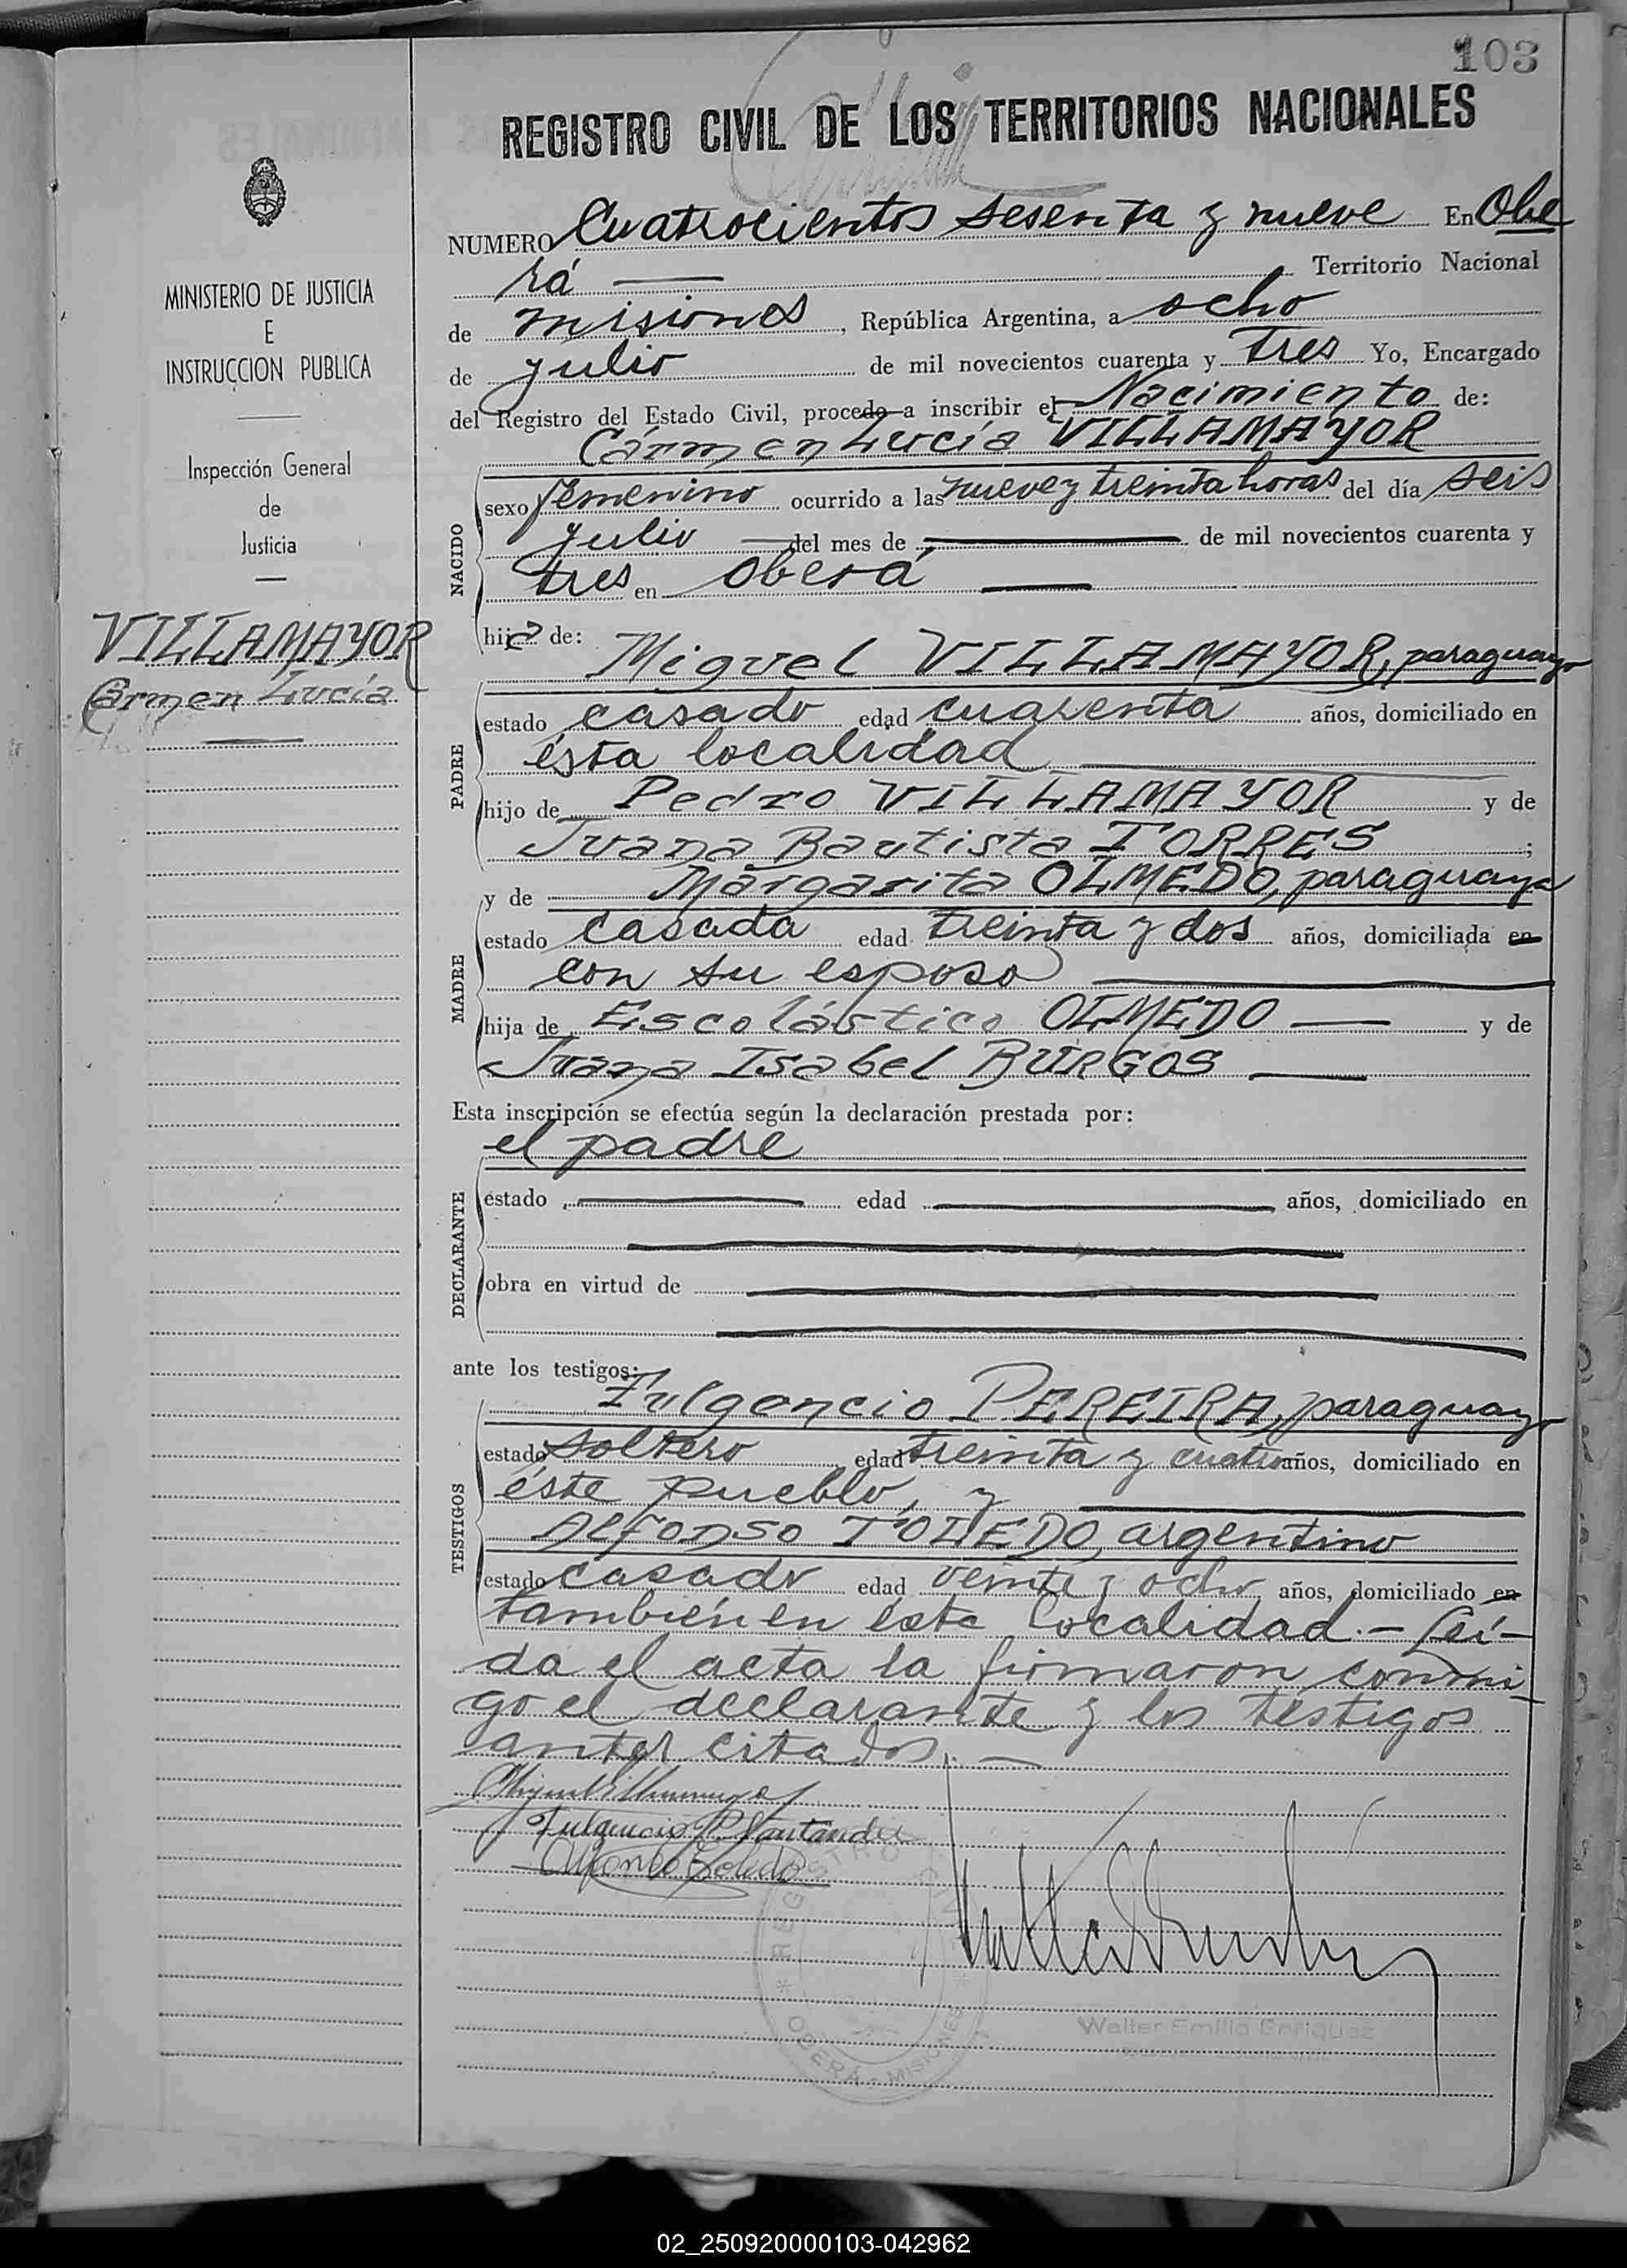 103
REGISTRO CIVIL DE LOS TERRITORIOS NACIONALES
MINISTERIO DE JUSTICIA
E
INSTRUCCION PUBLICA
Inspección General
de
Justicia
VILLAMAYOR
Carmen Lucía
NUMERO Cuatrocientos sesenta y nueve En Obe
rá Territorio Nacional
de misiones, República Argentina, a ocho
de julio de mil novecientos cuarenta y tres Yo, Encargado
del Registro del Estado Civil, procedo a inscribir el Nacimiento de:
Cármen Lucía VILLAMAYOR
NACIDO
sexo femenino ocurrido a las nueve y treinta horas del día seis
julio del mes de de mil novecientos cuarenta y
tres en Oberá
hija de:
Miguel VILLAMAYOR, paraguayo
PADRE
estado casado edad cuarenta años, domiciliado en
ésta localidad
hijo de Pedro VILLAMAYOR y de
Juana Bautista TORRES ;
y de Margarita OLMEDO, paraguaya
MADRE
estado casada edad treinta y dos años, domiciliada en
con su esposo
hija de Escolástico OLMEDO y de
Juana Isabel BURGOS
Esta inscripción se efectúa según la declaración prestada por:
el padre
DECLARANTE
estado edad años, domiciliado en
obra en virtud de
ante los testigos:
Fulgencio PEREIRA, paraguayo
TESTIGOS
estado soltero edad treinta y cuatro años, domiciliado en
éste pueblo, y
Alfonso TOLEDO, argentino
estado casado edad veinte y ocho años, domiciliado en
también en esta localidad.- Leí-
da el acta la firmaron conmi-
go el declarante y los testigos
antes citados.-
Miguel Villamayor
Fulgencio P. Santander
Alfonso Toledo
REGISTRO CIVIL
OBERÁ - MISIONES
Walter Emilio Enriquez
02_250920000103-042962